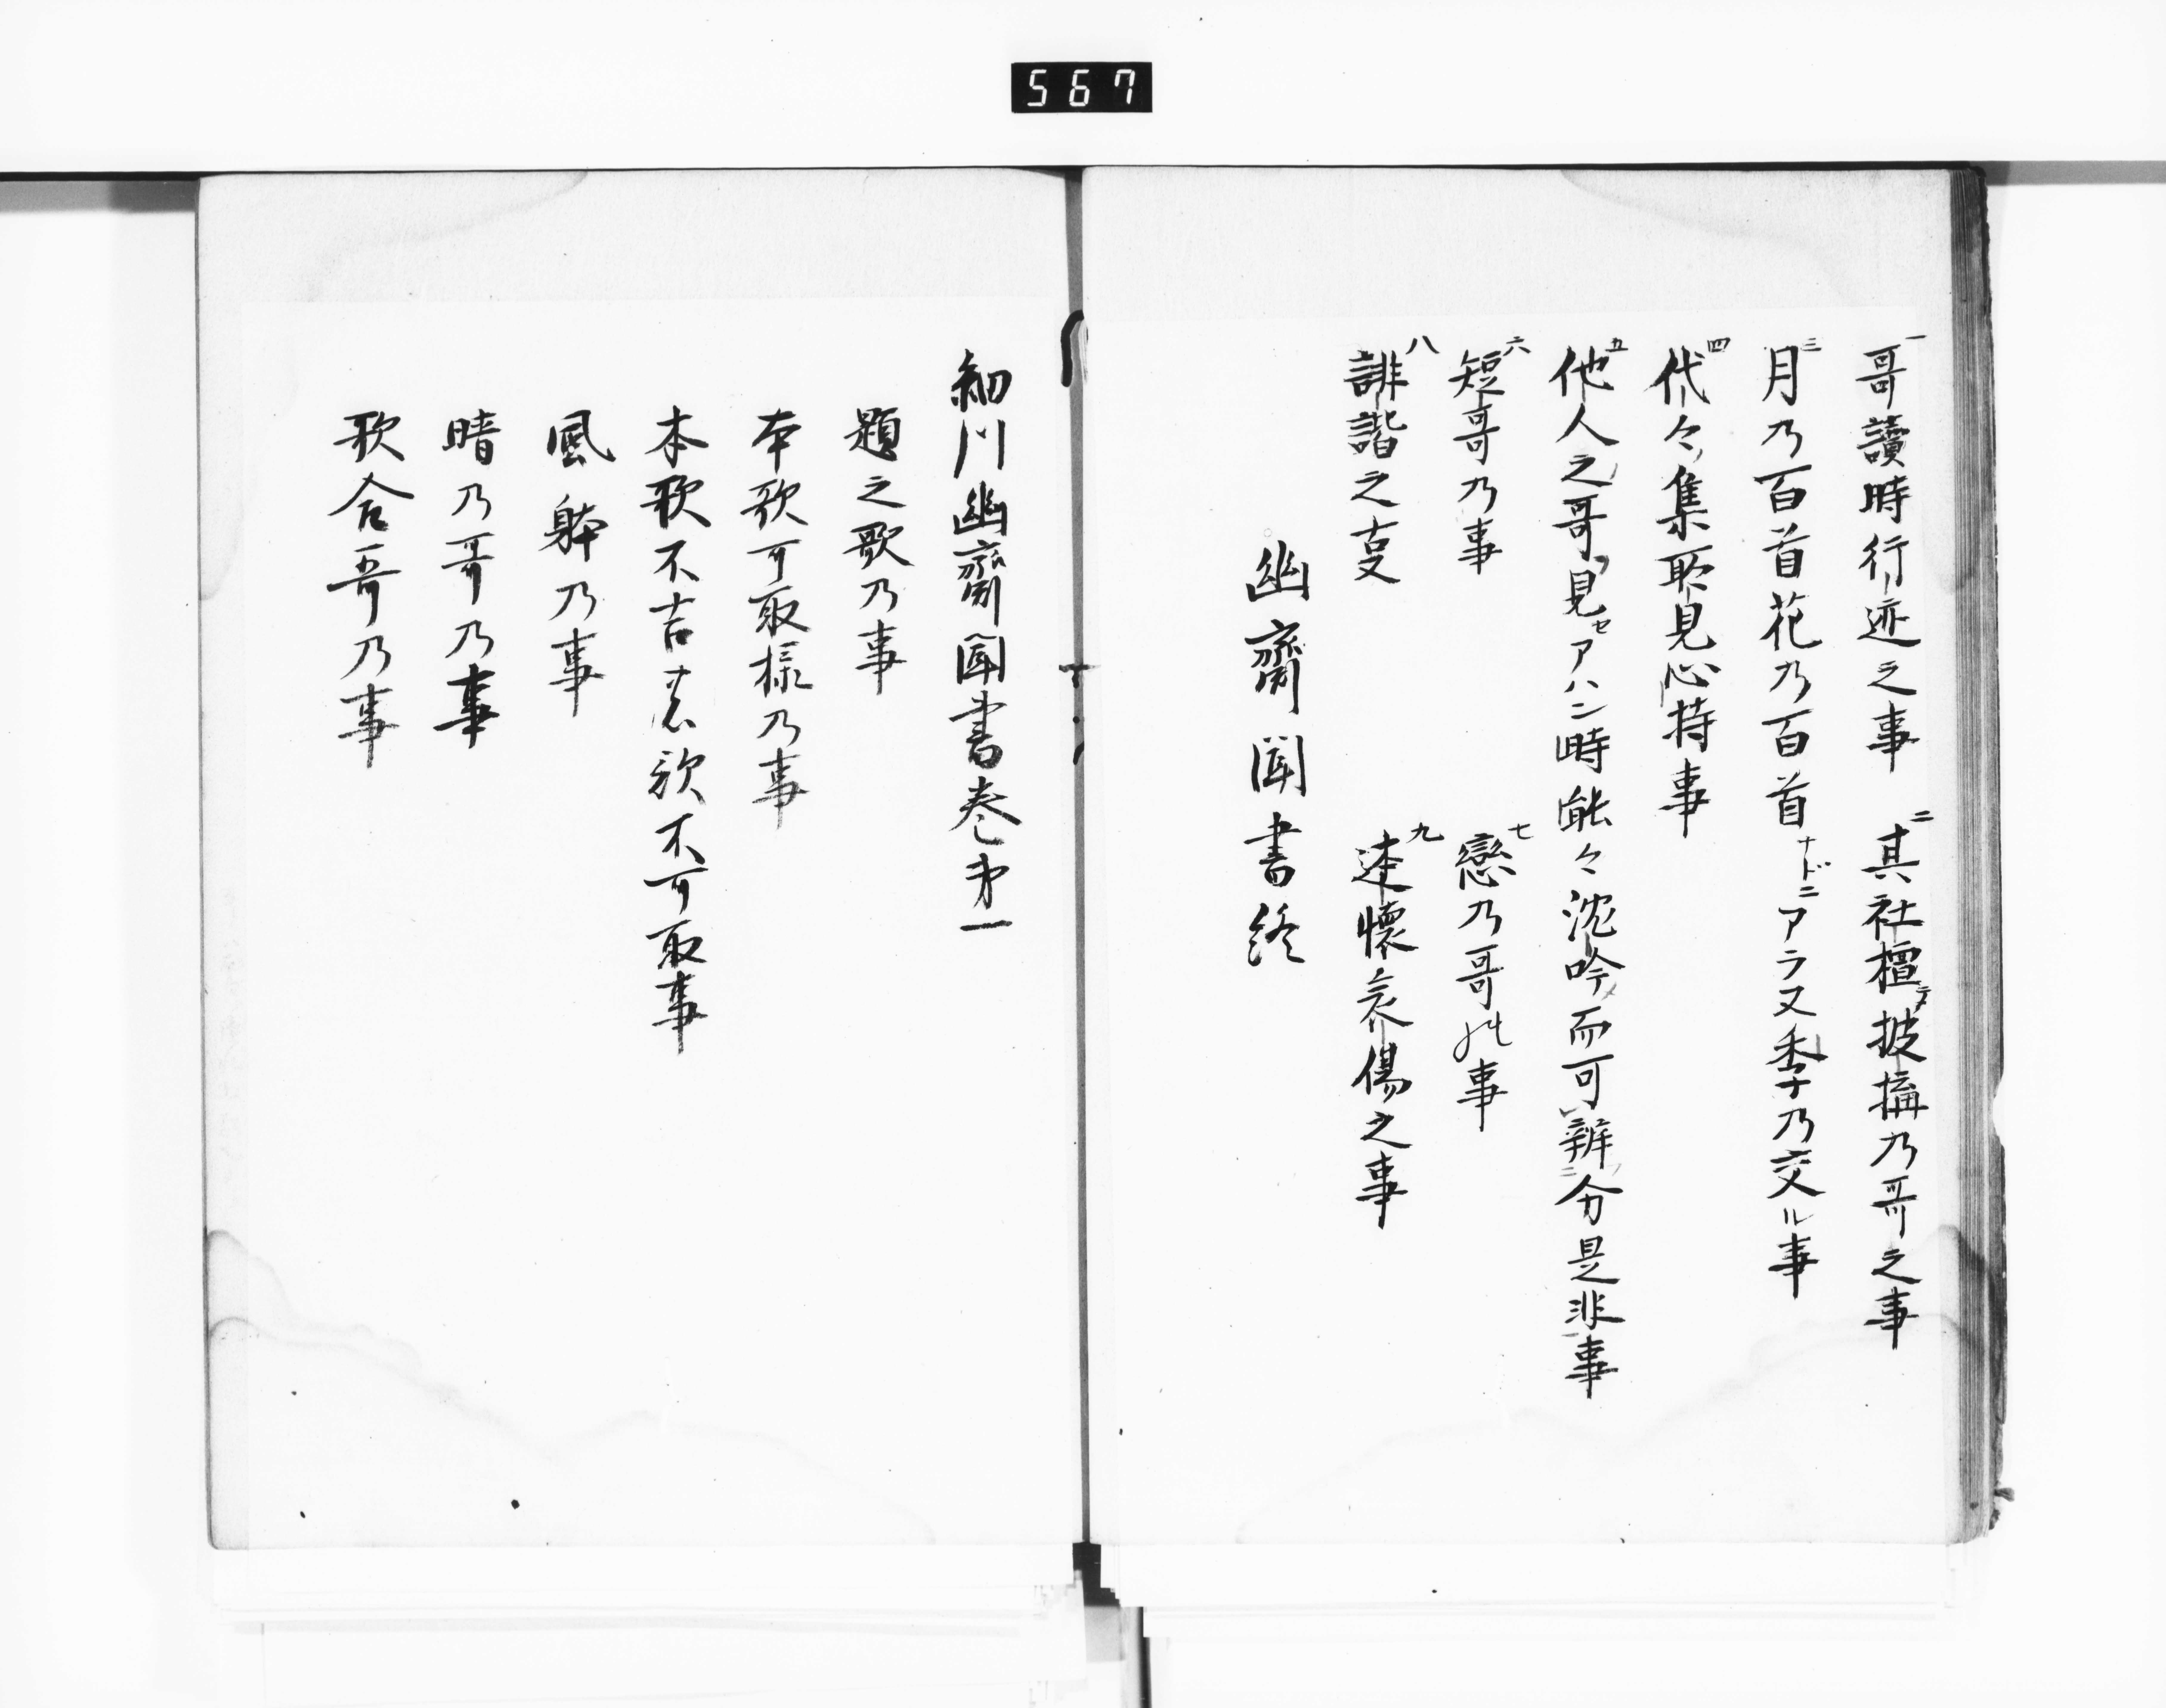 567
一哥讀時行迹之事　二其社檀ニテ披講乃哥之事
三月乃百首花乃百首ナドニアラ又季乃交ル事
四代々集取見心持事
五他人之哥ヲ見セアハン時能々沈吟メ而可辨分是非事
六短哥乃事　七戀乃哥此事
八誹諧之叓　九述懷哀傷之事
幽齋聞書終
細川幽齋聞書巻第一
題之歌乃事
本歌可取様乃事
本歌不吉ナル歌不可取事
風躰乃事
晴乃哥乃事
歌合哥乃事